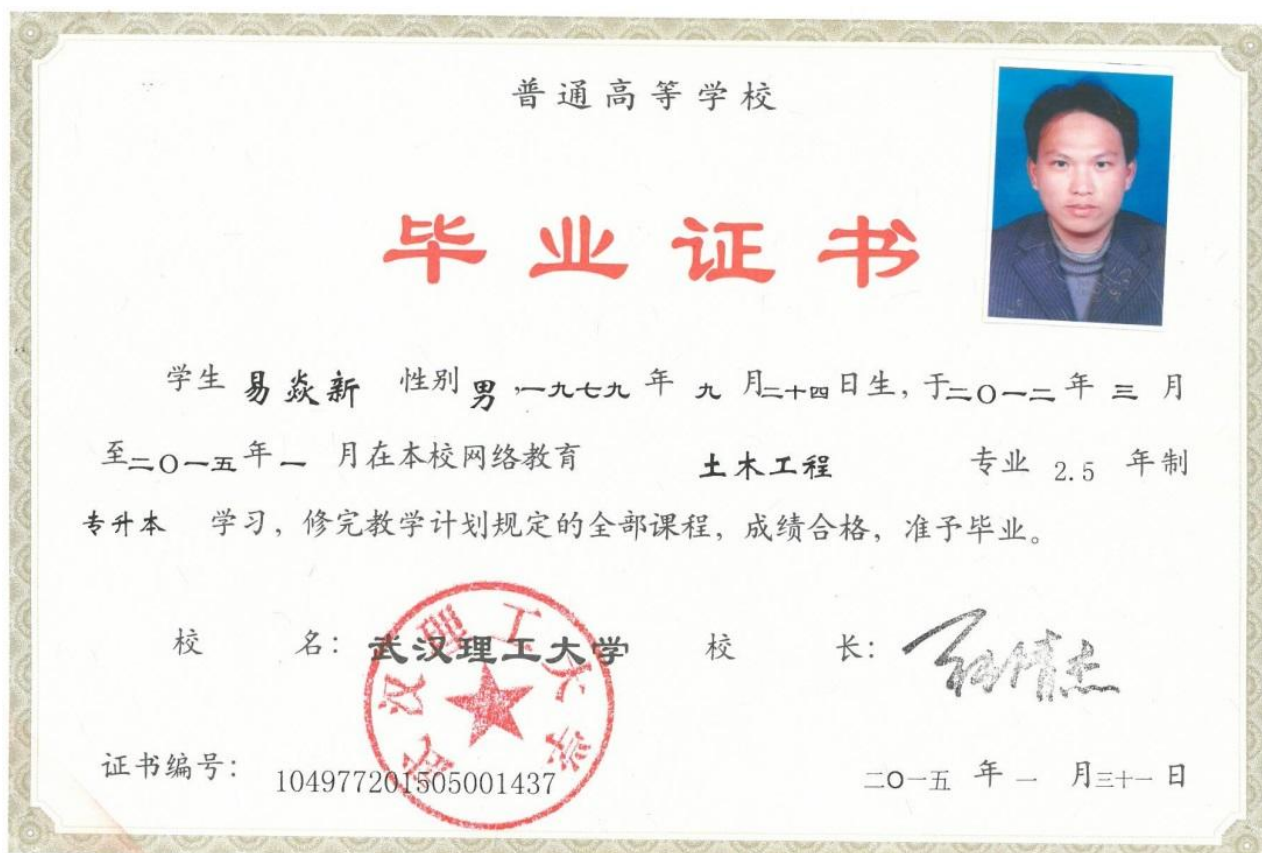 普通高等学校
毕业证书
学生 易焱新 性别 男,一九七九 年 九 月二十四日生, 于二〇一二 年 三 月
至二〇一五年 一 月在本校网络教育 土木工程 专业 2.5 年制
专升本 学习, 修完教学计划规定的全部课程, 成绩合格, 准予毕业。
校 名: 武汉理工大学 校 长:
武汉理工大学
证书编号: 104977201505001437 二〇一五 年 一 月三十一日